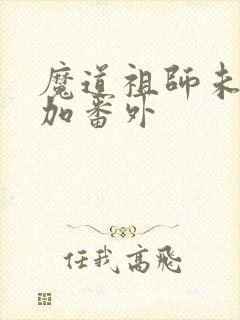 魔道祖師未
加番外
任我高飛